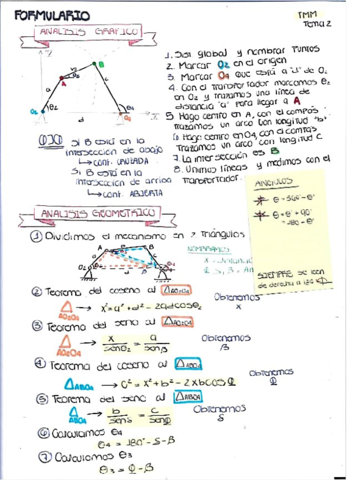 FORMULARIO
TMM
Tema 2
ANALISIS GRAFICO
1. Sist global y nombrar puntos
2. Marcar O2 en el origen
3. Marcar O4 que está a "d" de O2
4. Con el transportador marcamos θ2
en O2 y trazamos una línea de
distancia "a" para llegar a A
5. Hago centro en A, con el compás
trazamos un arco con longitud "b"
6. Hago centro en O4 con el compás
Trazamos un arco con longitud C
7. La intersección es B
8. Unimos líneas y medimos con el
transportador.
Si B está en la
intersección de abajo
conf. CRUZADA
Si B está en la
intersección de arriba
conf. ABIERTA
ANGULOS
ANALISIS GEOMETRICO
① Dividimos el mecanismo en 2 triángulos
NOMBRAMOS
SIEMPRE se leen
② Teorema del coseno al △AO2O4
x² = a² + d² - 2adcosθ2
Obtenemos
x
③ Teorema del seno al △AO2O4
x/senθ2 = a/senβ
Obtenemos
β
④ Teorema del coseno al △ABO4
c² = x² + b² - 2xbcos
Obtenemos
⑤ Teorema del seno al △ABO4
Obtenemos
⑥ Calculamos θ4
θ4 = 180° - δ - β
⑦ Calculamos θ3